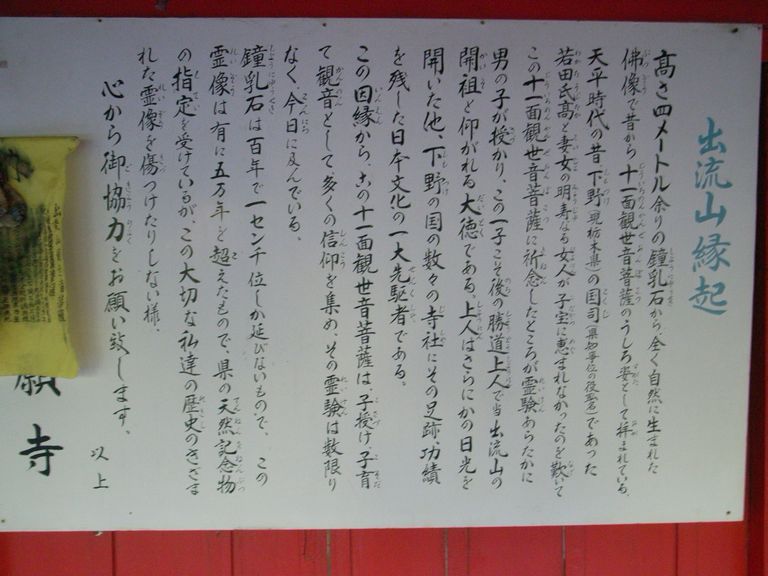 出流山縁起
高さ四メートル余りの鐘乳石から、全く自然に生まれた
佛像で昔から十一面観世音菩薩のうしろ姿として拝まれている。
天平時代の昔下野(現栃木県)の国司(県知事位の役名)であった
若田氏高と妻女の明寿なる女人が子宝に恵まれなかったのを歎いて
この十一面観世音菩薩に祈念したところが霊験あらたかに
男の子が授かり、この一子こそ後の勝道上人で当出流山の
開祖と仰がれる大徳である。上人はさらにかの日光を
開いた他、下野の国の数々の寺社にその足跡、功績
を残した日本文化の一大先駆者である。
この因縁から、この十一面観世音菩薩は、子授け、子育
て観音として多くの信仰を集め、その霊験は数限り
なく今日に及んでいる。
鐘乳石は百年で一センチ位しか延びないもので、この
霊像は有に五万年を超えたもので、県の天然記念物
の指定を受けているが、この大切な私達の歴史のきざま
れた霊像を傷つけたりしない様、
心から御協力をお願い致します。
以上
願寺